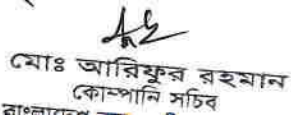 মোঃ আরিফুর রহমান
কোম্পানি সচিব
বাংলাদেশ